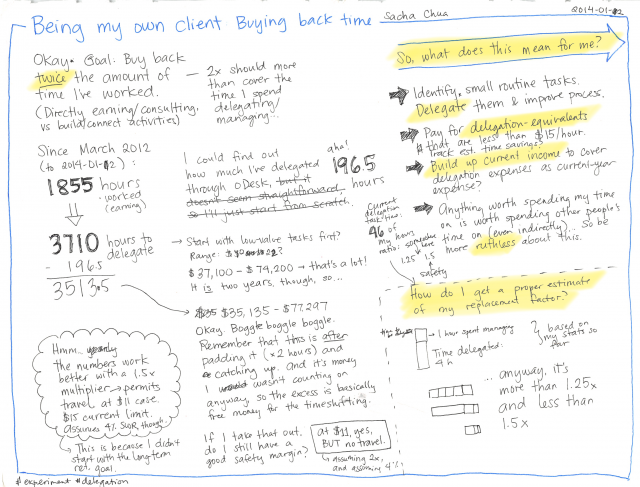 Being my own client: Buying back time
Sacha Chua
2014-01-12
Okay. Goal: Buy back
twice the amount of
time I've worked.
(Directly earning/consulting,
vs build/connect activities)
— 2x should more
than cover the
time I spend
delegating/
managing...
Since March 2012
(to 2014-01-12):
1855 hours
- worked
(earning)
3710 hours to
delegate
- 196.5
3513.5
I could find out
how much I've delegated
through oDesk, but it
doesn't seem straightforward,
so I'll just start from scratch.
aha!
196.5
hours
→ Start with low-value tasks first?
$37,100 - $74,200 → that's a lot!
It is two years, though, so...
$35,135 - $77,297
Okay. Boggle boggle boggle.
Remember that this is after
padding it (x2 hours) and
catching up. And it's money
I wasn't counting on
anyway, so the excess is basically
free money for the timeshifting.
If I take that out,
do I still have a
good safety margin?
at $11, yes,
BUT no travel.
assuming 2x,
and assuming 4%
Hmm...
The numbers work
better with a 1.5x
multiplier → permits
travel at $11 case.
$15 current limit.
assumes 4% SWR, though
→ This is because I didn't
start with the long-term
ret. goal.
#experiment #delegation
So, what does this mean for me?
Identify small routine tasks.
Delegate them & improve process.
Pay for delegation-equivalents
that are less than $15/hour.
Track est. time savings?
Build up current income to cover
delegation expenses as current-year
expense?
Anything worth spending my time
on is worth spending other people's
time on (even indirectly)... So be
more ruthless about this.
Current
delegation
46 of
my hours
ratio: somewhere
here
1.25 1.5
safety
How do I get a proper estimate
of my replacement factor?
→ 1 hour spent managing
Time delegated:
4 h
? based on
my stats so
far
... anyway, it's
more than 1.25x
and less than
1.5x